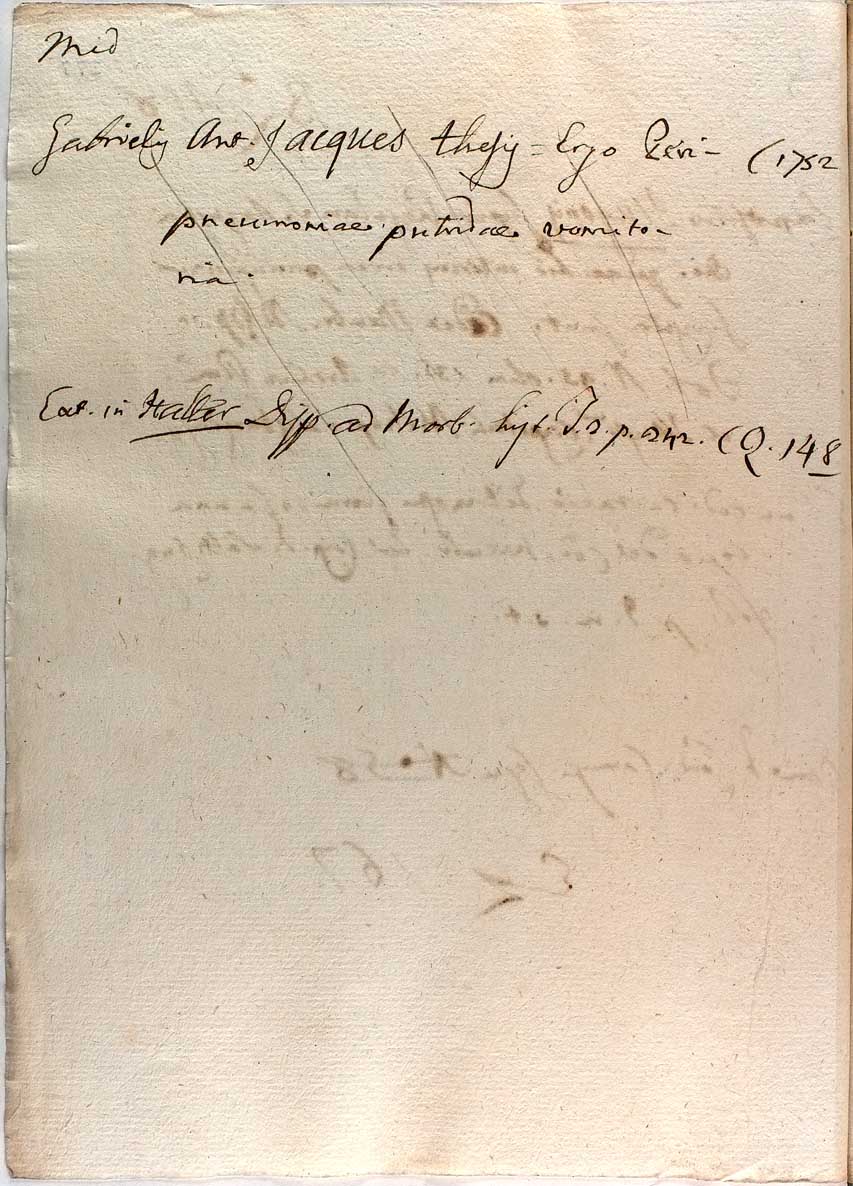 Med
Gabrielis Ant. Jacques thesis = Ergo Peri- (1752
pneumoniae putridae vomito-
ria.
Ext. in Haller Diss. ad Morb. hist. T. 2. p. 242. (Q. 148